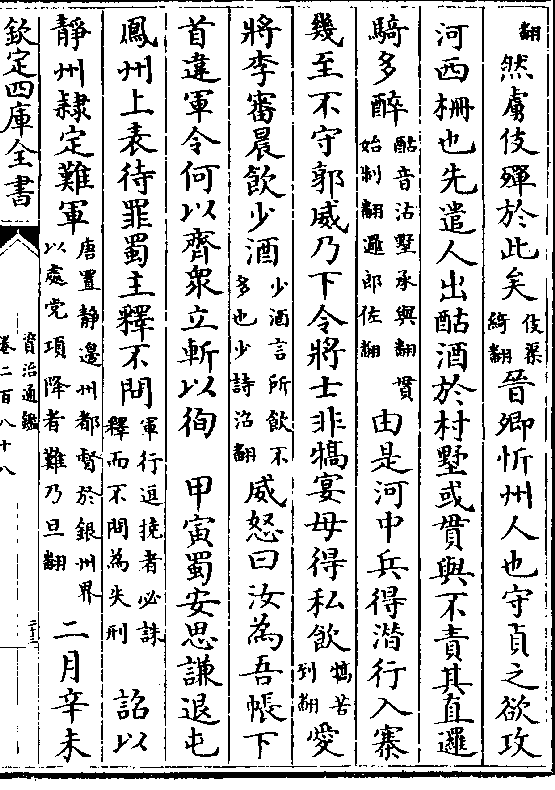 翻然虜伎殫於此矣伎渠綺翻晉卿忻州人也守貞之欲攻
河西柵也先遣人出酤酒於村墅或貰與不責其直邏
騎多醉酤音沽墅承與翻貰始制翻邏郎佐翻由是河中兵得潛行入寨
幾至不守郭威乃下令將士非犒宴毋得私飲犒苦到翻愛
將李審晨飲少酒少酒言所飲不多也少詩沼翻威怒曰汝為吾帳下
首違軍令何以齊衆立斬以徇 甲寅蜀安思謙退屯
鳳州上表待罪蜀主釋不問軍行逗撓者必誅釋而不問為失刑 詔以
靜州隸定難軍唐置靜邊州都督於銀州界以處党項降者難乃旦翻 二月辛未
欽定四庫全書
資治通鑑
卷二百八十八